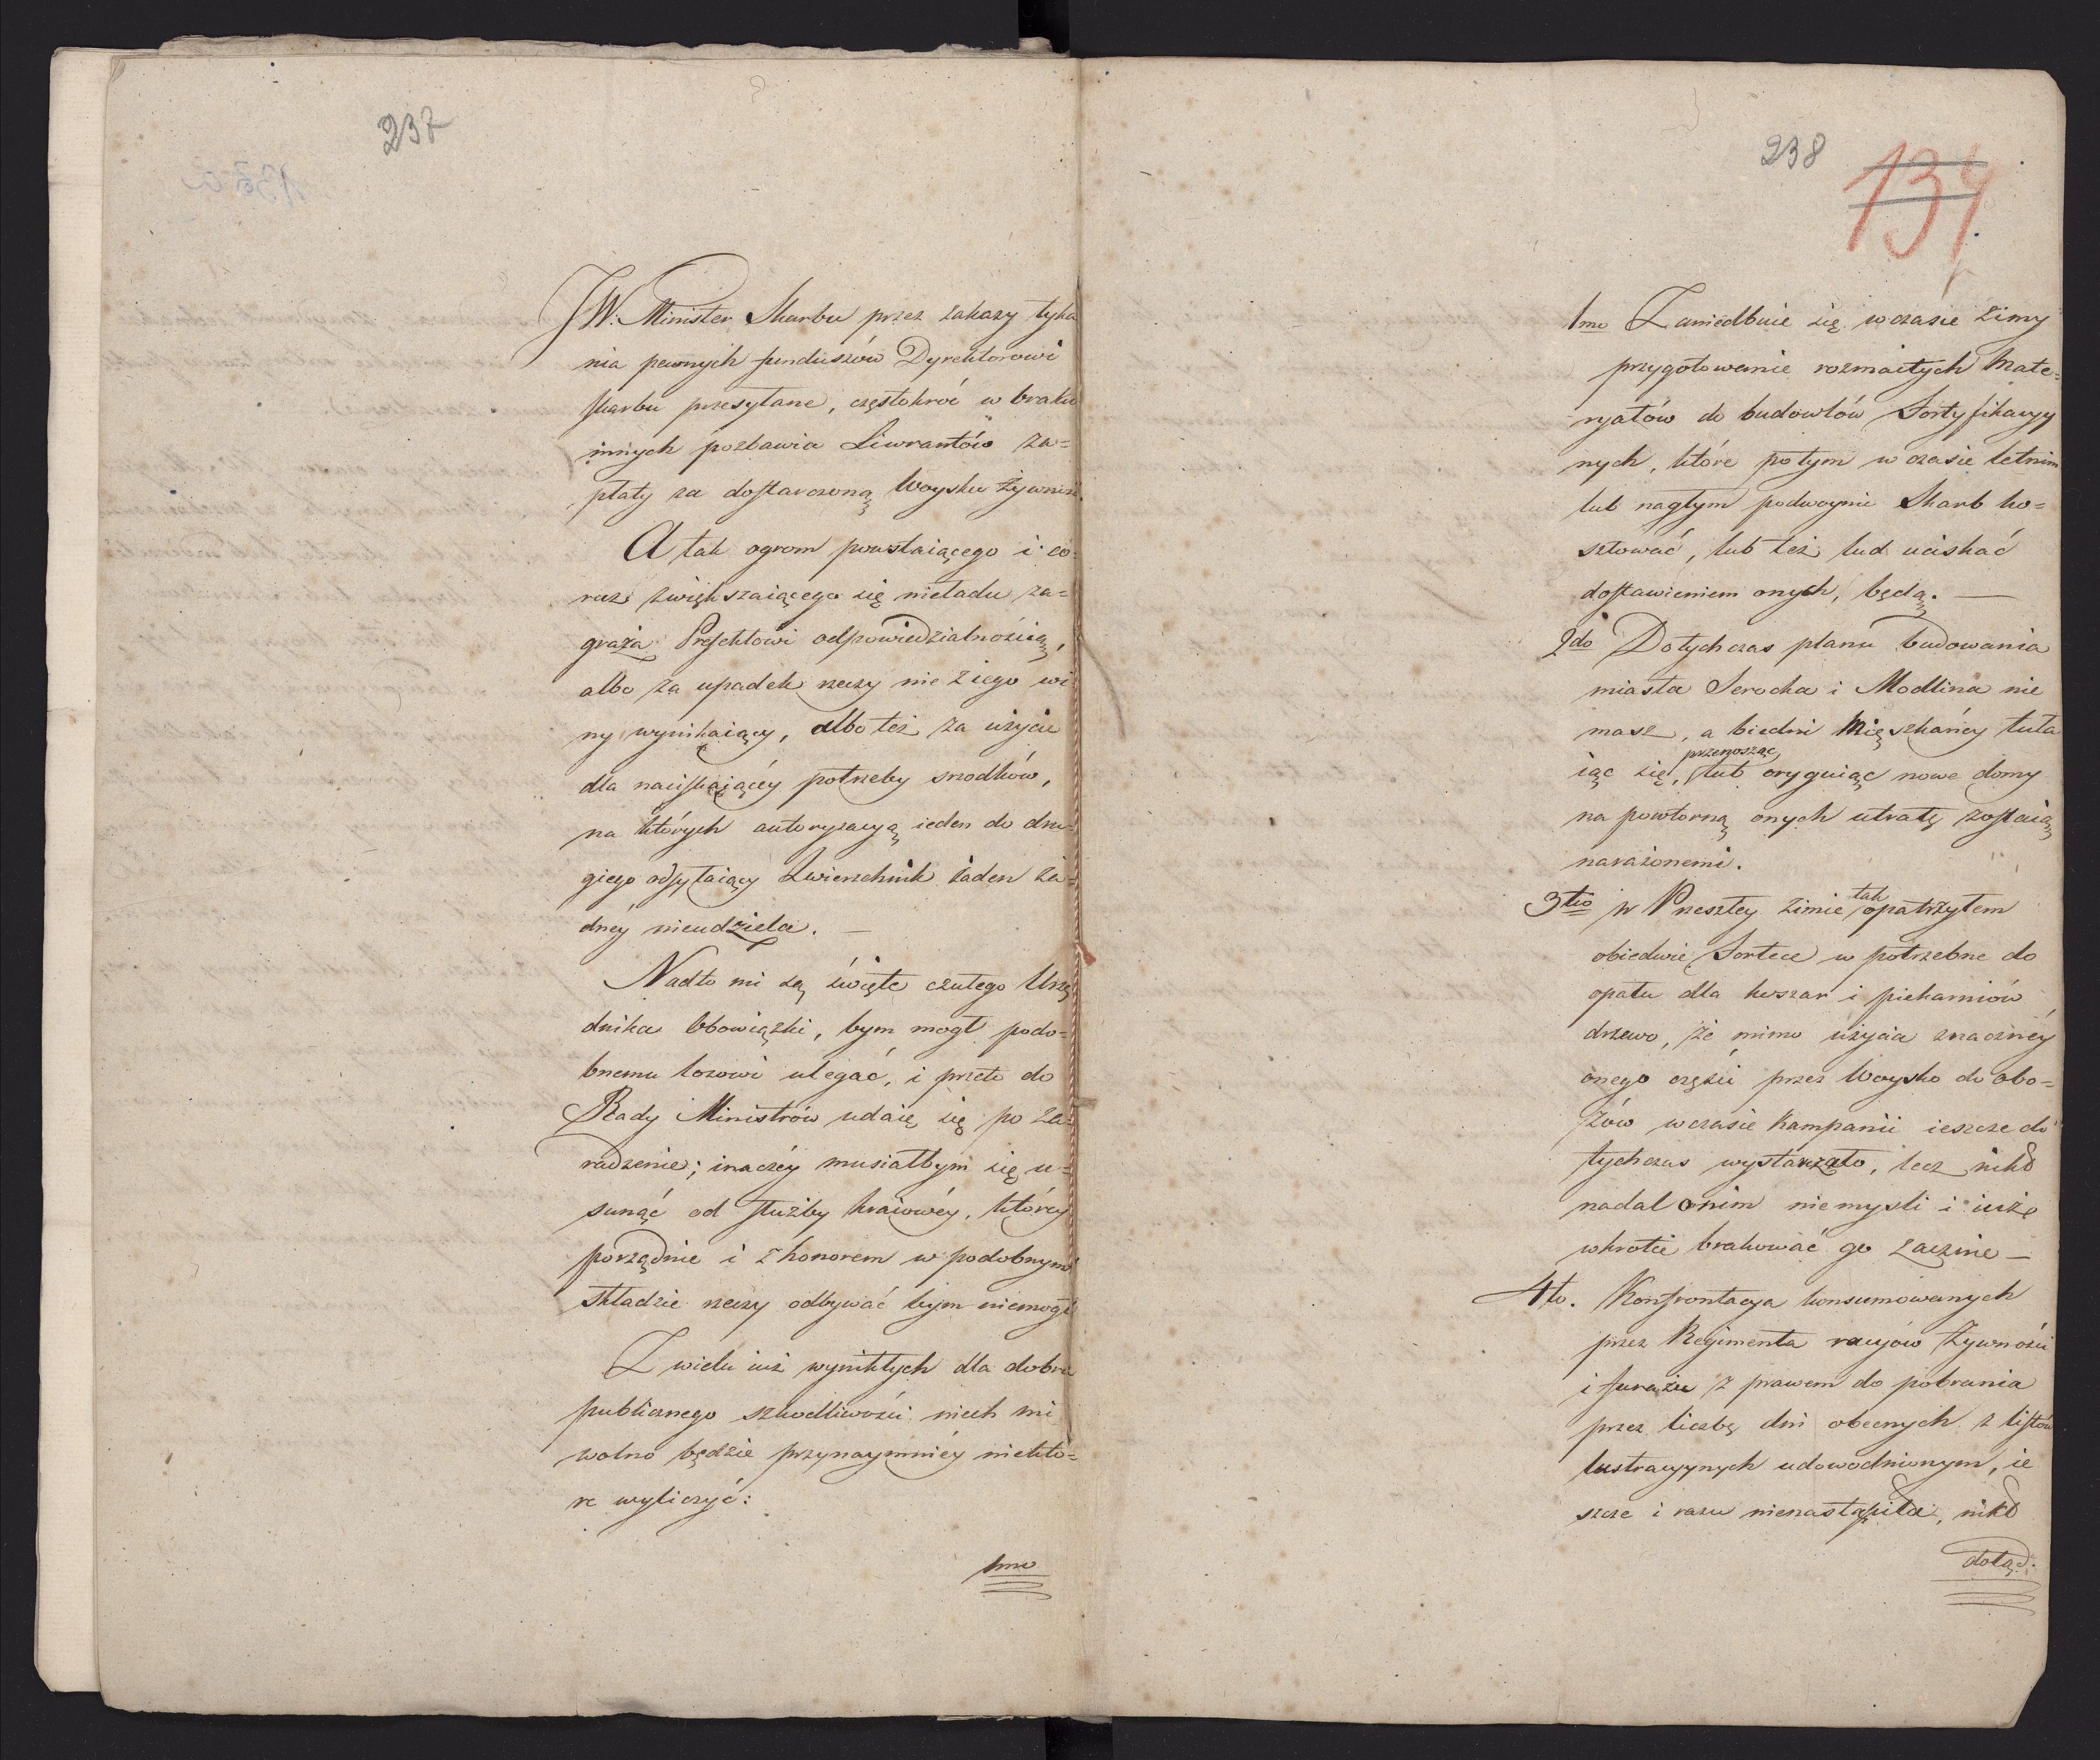 237
JW. Minister Skarbu przez zakazy tyka
nia pewnych funduszów Dyrektorowi
skarbu przesyłane, częstokróć w braku
innych pozbawia Liwrantów za=
płaty za dostarczoną Woysku żywność.
A tak ogrom powstaiącego i co
raz zwiększaiącego się nieładu za=
graża Prefektowi odpowiedzialnością,
albo za upadek rzeczy nie z iego wi
ny wynikaiący, albo też za użycie
dla naciskaiącéy potrzeby srzodków,
na których autoryzacyą ieden do dru=
giego odsyłaiący Zwierzchnik żaden ża=
dnéy nieudziela. —
Nadto mi są święte czułego Urzę
dnika Obowiązki, bym mogł podo=
bnemu losowi ulegać, i przeto do
Rady Ministrów udaię się po za=
radzenie; inaczéy musiałbym się u=
sunąć od służby kraiowéy, któréy
porządnie i z honorem w podobnym
składzie rzeczy odbywać bym niemogł
Z wielu iuż wynikłych dla dobra
publicznego szkodliwości niech mi
wolno będzie przynaymniéy niektó=
re wyliczyć:
1mo
238
134
1mo Zaniedbuie się w czasie zimy
przygotowanie rozmaitych Mate=
ryałów do budowlów Fortyfikacyy
nych, które potym w czasie letnim
lub nagłym podwoynie Skarb ko=
sztować, lub też lud uciskać
dostawieniem onych, będą. —
2do Dotychczas planu budowania
miasta Serocka i Modlina nie
masz, a biedni Mięszkańcy tuła
przenosząc
iąc się, lub oryguiąc nowe domy
na powtorną onych utratę zostaią
narażonemi.
3tio w Przeszłey zimie tak opatrzyłem
obiedwie Fortece w potrzebne do
opału dla koszar i piekarniów
drzewo, że mimo użycia znacznéy
onego części przez Woysko do obo=
zów w czasie Kampanii ieszcze do
tychczas wystarzało, lecz nikt
nadal onim niemysli i iuże
wkrotce brakować go zaczine —
4to. Konfrontacya konsumowanych
przez Regimenta racyów Żywności
i furażu z prawem do pobrania
przez liczbę dni obecnych z listów
lustracyynych udowodnionym, ie
szcze i razu nienastąpiła, nikt
dotąd.